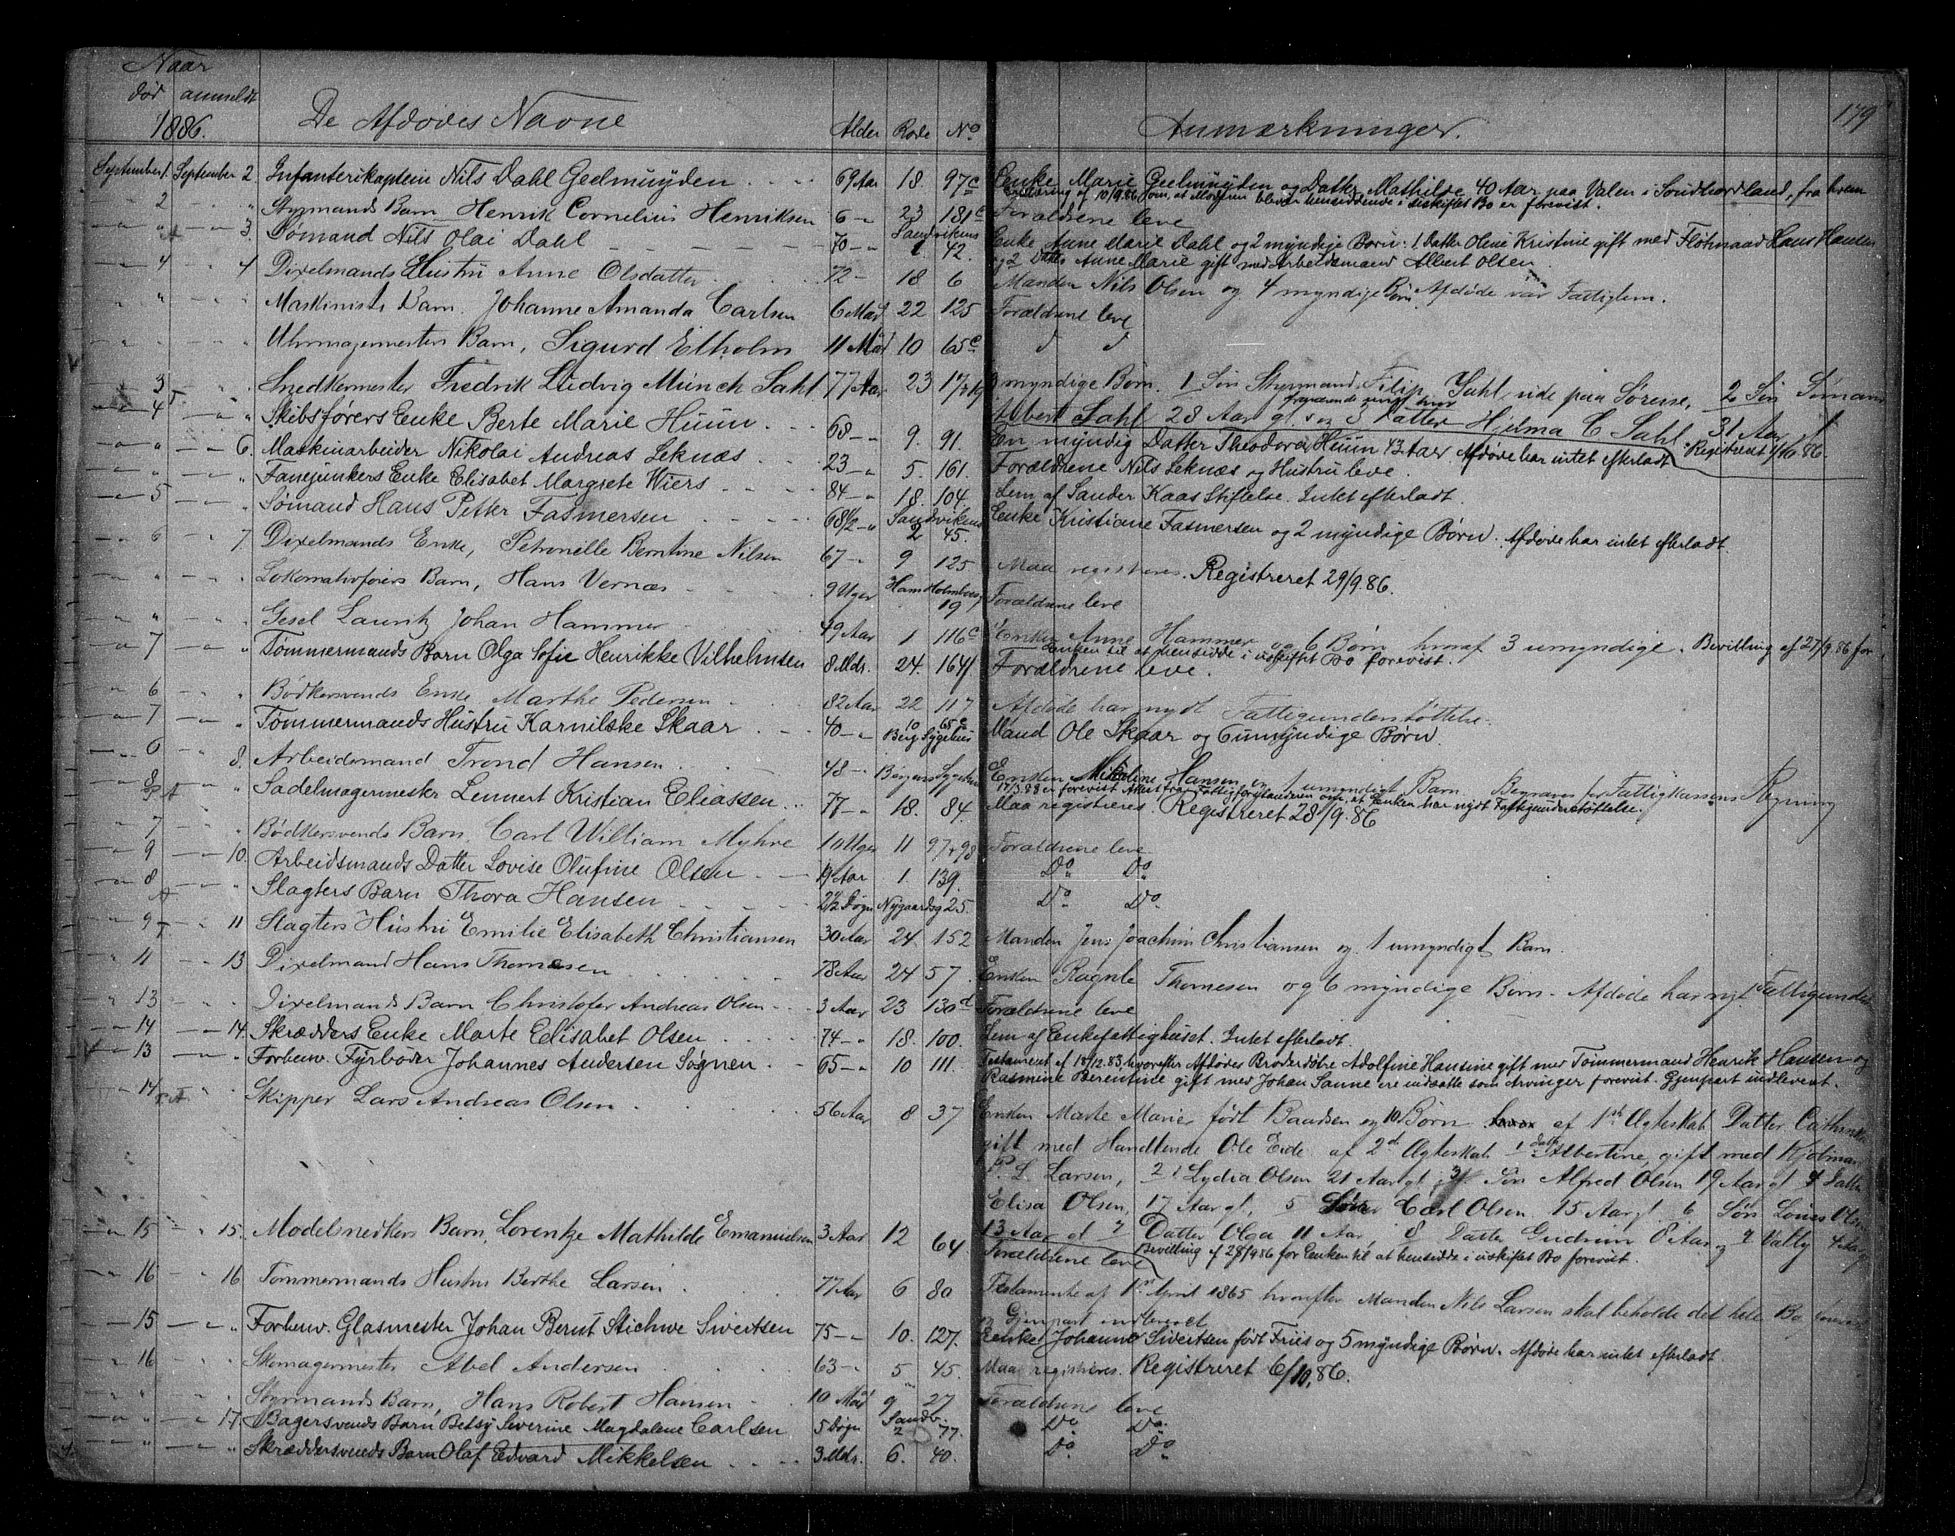 Naar
død anmeldt De Afdødes Navne Alder Rode No Anmærkninger. 179
1886.
September 1. September 2. Infanterikaptein Nils Dahl Geelmuyden 69 Aar 18 97c Enke Marie Geelmuyden og Datter Mathilde 40 Aar paa Valen i Søndhordland, fra hvem
Erklæring af 10/9.86 om, at Moderen bliver hensiddende i uskiftet Bo er forevist.
2 " Styrmands Barn Henrik Cornelius Henriksen 6 " 23 181c Forældrene leve
" 3. Sømand Nils Olai Dahl 70 " Sandvikens 1. 42. Enke Anne Marie Dahl og 2 myndige Børn: 1 Datter Oline Kristine gift med Fløtmand Hans Hansen
og 2 Datter Anne Marie gift med Arbeidsmand Albert Olsen.
4 4 Dixelmands Hustru Anne Olsdatter 72 " 18 6 Manden Nils Olsen og 4 myndige Børn Afdøde var Fattiglem.
" " Maskinists Barn. Johanne Amanda Carlsen 6 Mdr 22 125 Forældrene leve
" " Uhrmagermesters Barn, Sigurd Etholm 11 Mdr 10 65c " "
3 " Snedkermester Fredrik Ludvig Münch Sahl 77 Aar 23 3 myndige Børn. 1 Søn Styrmand Filip Sahl, ude paa Søreise, 2 Søn Sømand
Albert Sahl 28 Aar gl. og 3 Datter Hjelma C. Sahl 31 Aar
4 " Skibsførers Enke Berte Marie Huun 68 " 9. 91. En myndig Datter Theodora Huun 43 Aar. Afdøde har intet efterladt. Registreret 4/10 86.
" 6. Maskinarbeider Nikolai Andreas Leknæs 23 " 5. 161. Forældrene Nils Leknæs og Hustru leve.
" " Fanejunkers Enke Elisabet Margrete Wiers 84 " 18. 104. Lem af Sander Kaas Stiftelse. Intet efterladt.
5 " Sømand Hans Petter Fasmersen 68½ " Sandvikens 2 45. Enke Kristiane Fasmersen og 2 myndige Børn. Afdøde har intet efterladt.
6 7. Dixelmands Enke, Petronille Berntine Nilsen 67 " 9 125 Maa registreres. Registreret 29/9.86.
" " Lokomotivførers Barn, Hans Vernæs 9 Uger Hans Holmboesg 19 Forældrene leve
" " Gesel Lauritz Johan Hammer 49 Aar 1 116c Enken Anne Hammer og 6 Børn hvoraf 3 umyndige. Bevilling af 27/9.86 for
Enken til at hensidde i uskiftet Bo forevist.
7 " Tømmermands Barn Olga Sofie Henrikke Vilhelmsen 8 Mdr. 24. 164 Forældrene leve.
6 " Bødkersvends Enke Marthe Pedersen 82 Aar 22 117 Afdøde har nydt Fattigunderstøttelse.
7 " Tømmermands Hustru Karnilske Skaar 40 " 10 65c Berg Sygehus Mand Ole Skaar og 6 umyndige Børn.
6 8. Arbeidsmand Trond Hansen 48 " Bergens Sygehus Enken Mikeline Hansen og 1 umyndigt Barn. Begraves for Fattigkassens Regning
17/3.88 er forevist Attest fra Fattigforstanderen om, at Enken har nydt Fattigunderstøttelse.
8 " Sadelmagermester Lennert Kristian Eliassen 77 " 18. 84. Maa registreres. Registreret 28/9.86
7 " Bødkersvends Barn Carl William Myhre 10 Uger 11 97 98 Forældrene leve
9 10. Arbeidsmands Datter Lovise Olufine Olsen 19 Aar 1. 139. Do Do
8 " Slagters Barn Thora Hansen 2½ Døgn Nygaardsg 25. Do Do
9 11 Slagters Hustru Emilie Elisabeth Christiansen 30 Aar 24. 152 Manden Jens Joachim Christiansen og 1 umyndigt Barn
11 13 Dixelmand Hans Thomesen 78 Aar 24 57. Enken Ragnle Thomesen og 6 myndige Børn. Afdøde har nyt Fattigunderst
13 " Dixelmands Barn Christofer Andreas Olsen 3 Aar 23 130d Forældrene leve
14 14. Skrædders Enke Marte Elisabet Olsen 74 " 18. 100. Lem af Enkefattighuset. Intet efterladt.
13 " Forhenv. Fyrbøder Johannes Andersen Sognen 65 " 10 111. Testament af 18/12.83, hvorefter Afdødes Broderdøtre Adolfine Hansine gift med Tømmermand Henrik Hansen og
Rasmine Berentine gift med Johan Sanne ere indsatte som Arvinger forevist. Gjenpart indleveret.
14 " Skipper Lars Andreas Olsen 56 Aar 8 37 Enken Marte Marie født Baardsen og 10 Børn af 1st Ægteskab Datter Cathinka
gift med Handlende Ole Eide af 2d Ægteskab 1 Datter Albertine, gift med Kjøbmand
P. L. Larsen, 2. Lydia Olsen 21 Aar gl, 3 Søn Alfred Olsen 19 Aar gl 4 Datter
Elisa Olsen, 17 Aar gl, 5 Carl Olsen 15 Aar gl. 6 Søn Louis Olsen
13 Aar gl 7 Datter Olga 11 Aar, 8 Datter Gudrun 8 Aar og 9 Valby 4 Aar
Bevilling af 28/9.86 for Enken til at hensidde i uskiftet Bo forevist.
15 15. Modelsnedkers Barn, Lorentze Mathilde Emanuelsen 3 Aar 12 64 Forældrene leve
16 16 Tømmermands Hustru Berthe Larsen 77 Aar 6 80 Testamente af 1st April 1865 hvorefter Manden Nils Larsen skal beholde det hele Bo forevist
og Gjenpart indleveret
15 " Forhenv. Glasmester Johan Bernt Stichwe Sivertsen 75 " 10. 127. Enke Johanne Sivertsen født Friis og 5 myndige Børn. Afdøde har intet efterladt
16 " Skomagermester Abel Andersen 63 " 5 45. Maa registreres. Registreret 6/10.86.
" " Styrmands Barn, Hans Robert Hansen 10 Mdr 9 27 Forældrene leve
" 17. Bagersvends Barn Betsy Severine Magdalene Carlsen 5 Døgn Sandv. 2 77. Do Do
" " Skræddersvends Barn Olaf Edvard Mikkelsen 3 Mdr. 6. 40. Do Do